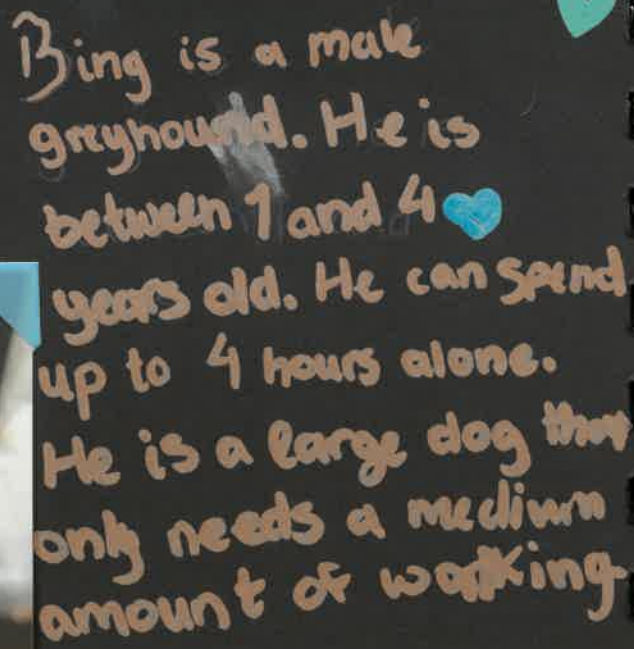 Bing is a male
greyhound. He is
between 1 and 4
years old. He can spend
up to 4 hours alone.
He is a large dog that
only needs a medium
amount of walking